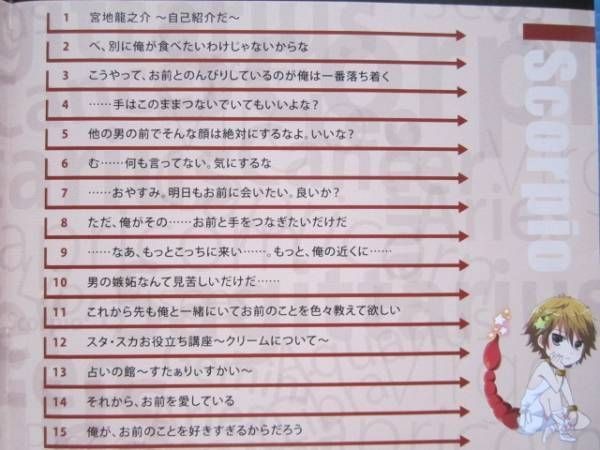 1 宮地龍之介 ～自己紹介だ～
2 べ、別に俺が食べたいわけじゃないからな
3 こうやって、お前とのんびりしているのが俺は一番落ち着く
4 ……手はこのままつないでいてもいいよな？
5 他の男の前でそんな顔は絶対にするなよ。いいな？
6 む……何も言ってない。気にするな
7 ……おやすみ。明日もお前に会いたい。良いか？
8 ただ、俺がその……お前と手をつなぎたいだけだ
9 ……なあ、もっとこっちに来い……。もっと、俺の近くに……
10 男の嫉妬なんて見苦しいだけだ……
11 これから先も俺と一緒にいてお前のことを色々教えて欲しい
12 スタ・スカお役立ち講座～クリームについて～
13 占いの館～すたぁりぃすかい～
14 それから、お前を愛している
15 俺が、お前のことを好きすぎるからだろう
Scorpio